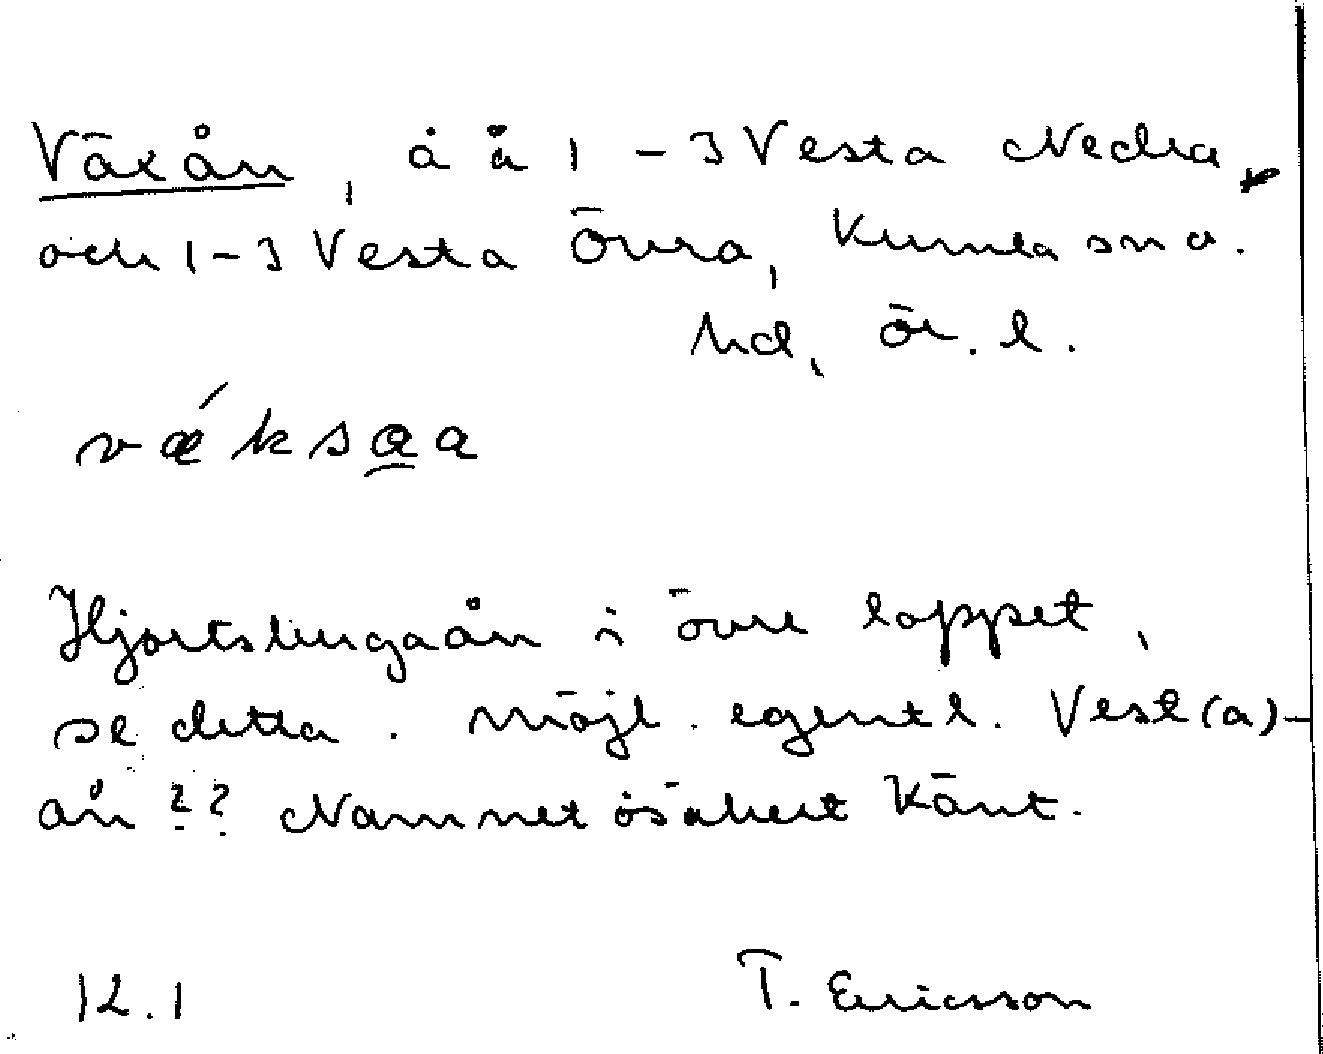 Växån, å å 1-3 Vesta Nedra,
och 1-3 Vesta Övra, Kumla sn o.
hd, Ör. l.
vǽksa̲a
Hjortsbergaån i övre loppet,
se detta. Möjl. egentl. Vest(a)-
ån?? Namnet osäkert känt.
12.1 T. Ericsson